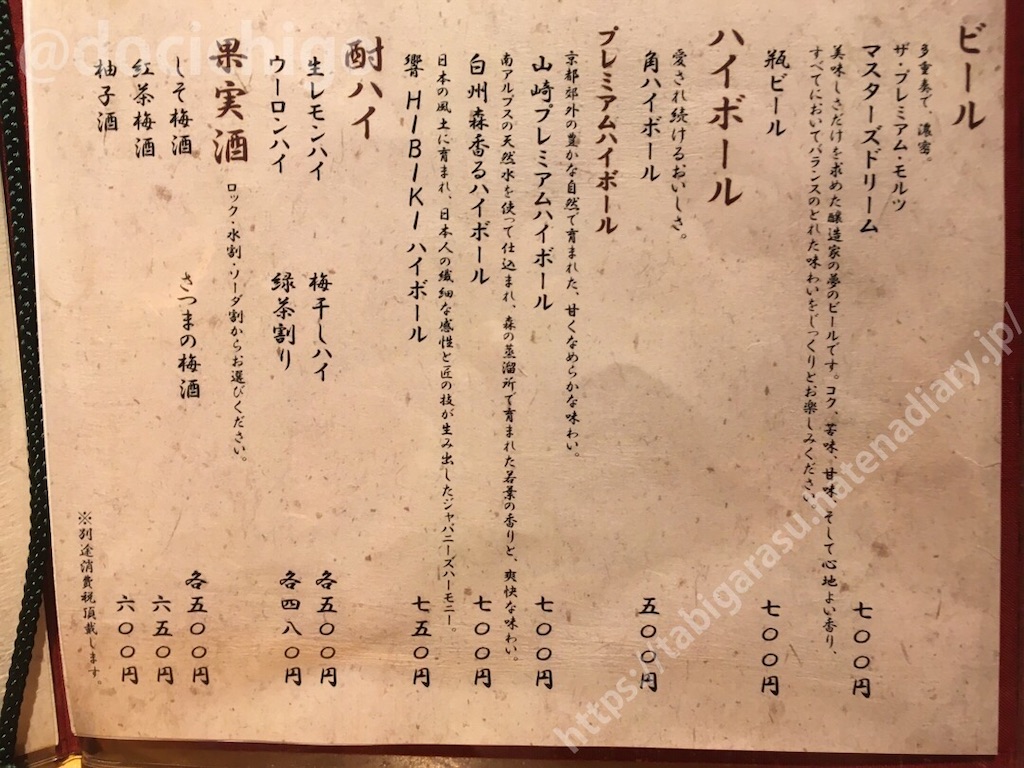 ビール
多重奏で、濃密。
ザ・プレミアム・モルツ
マスターズドリーム 七〇〇円
美味しさだけを求めた醸造家の夢のビールです。コク、苦味、甘味、そして心地よい香り、
すべてにおいてバランスのとれた味わいをじっくりとお楽しみください。
瓶ビール 七〇〇円
ハイボール
愛され続けるおいしさ。
角ハイボール 五〇〇円
プレミアムハイボール
京都郊外の豊かな自然で育まれた、甘くなめらかな味わい。
山崎プレミアムハイボール 七〇〇円
南アルプスの天然水を使って仕込まれ、森の蒸溜所で育まれた若葉の香りと、爽快な味わい。
白州 森香るハイボール 七〇〇円
日本の風土に育まれ、日本人の繊細な感性と匠の技が生み出したジャパニーズハーモニー。
響 HIBIKI ハイボール 七五〇円
酎ハイ
生レモンハイ 梅干しハイ 各五〇〇円
ウーロンハイ 緑茶割り 各四八〇円
果実酒 ロック・水割・ソーダ割からお選びください。
しそ梅酒 さつまの梅酒 各五〇〇円
紅茶梅酒 六五〇円
柚子酒 六〇〇円
※別途消費税頂戴します。
@docichigo
https://tabigarasu.hatenadiary.jp/